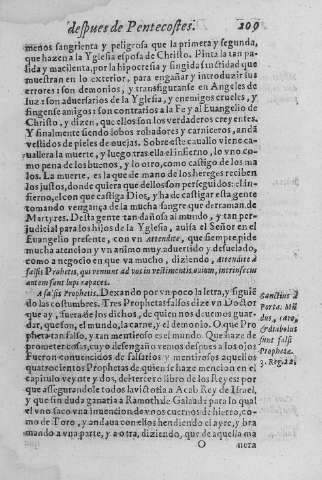 despues de Pentecostes. 209
menos sangrienta y peligrosa que la primera y segunda,
que hazen a la Yglesia esposa de Christo. Pinta la tan pa-
lida y macilenta, por la hipocresia y fingida sanctidad que
muestran en lo exterior, para engañar y introduzir sus
errores: son demonios, y transfiguranse en Angeles de
luz: son aduersarios de la Yglesia, y enemigos crueles, y
fingense amigos: son contrarios a la Fe y al Euangelio de
Christo, y dizen, que ellos son los verdaderos creyentes.
Y finalmente siendo lobos robadores y carniceros, andã
vestidos de pieles de ouejas. Sobre este cauallo viene ca-
uallera la muerte, y luego tras ella el infierno, lo vno co-
mo pena de los buenos, y lo otro, como castigo de los ma
los. La muerte, es la que de mano de los hereges reciben
los justos, donde quiera que dellos son perseguidos: el in-
fierno, es con que castiga Dios, y ha de castigar esta gente
tomando vengança de la mucha sangre que derraman de
Martyres. Desta gente tan dañosa al mundo, y tan per-
judicial para los hijos de la Yglesia, auisa el Señor en el
Euangelio presente, con vn Attendite, que siempre pide
mucha atencion y vn animo muy aduertido y desuelado,
como a negocio en que va mucho, diziendo, Attendite à
falsis Prophetis, qui veniunt ad vos in vestimentis ouium, intrinsecus
autem sunt lupi rapaces.
A falsis Prophetis. Dexando por vn poco la letra, y siguiẽ
do las costumbres. Tres Prophetas falsos dize vn Doctor
que ay, fuera de los dichos, de quien nos deuemos guar-
dar, que son, el mundo, la carne, y el demonio. O que Pro
phetas tan falso, y tan mentirosos es el mundo. Que haze de
prometer cosas, cuyo desengaño vemos despues a los ojos
Fueron conuencidos de falsarios y mentirosos aquellos
quatrocientos Prophetas de quien se haze mencion en el
capitulo veynte y dos, del tercero libro de los Reyes: por
que assegurandole todos la victoria a Acab Rey de Israel,
y que sin duda ganaria a Ramoth de Galaad, para lo qual
el vno saco vna inuencion de vnos cuernos de hierro, co-
mo de Toro, y andaua con ellos hendiendo el ayre, y bra
mando a vna parte, y a otra, diziendo, que de aquella ma
O nera
Sanctius à
Porta. Mũ
dus, caro,
& diabolus
sunt falsi
Prophetæ.
3. Reg. 22.